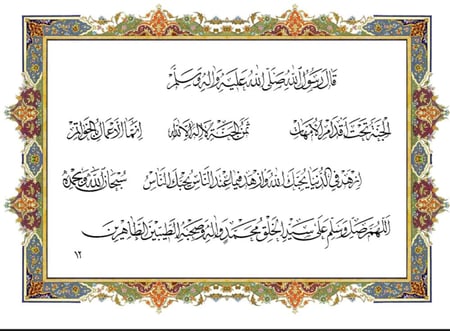 قال رسول الله صلى الله عليه وآله وسلم
الجنة تحت أقدام الأمهات ثمن الجنة لا إله إلا الله إنما الأعمال بالخواتيم
ازهد في الدنيا يحبك الله وازهد فيما عند الناس يحبك الناس سبحان الله وبحمده
اللهم صل وسلم على سيد الخلق محمد وآله وصحبه الطيبين الطاهرين
١٢